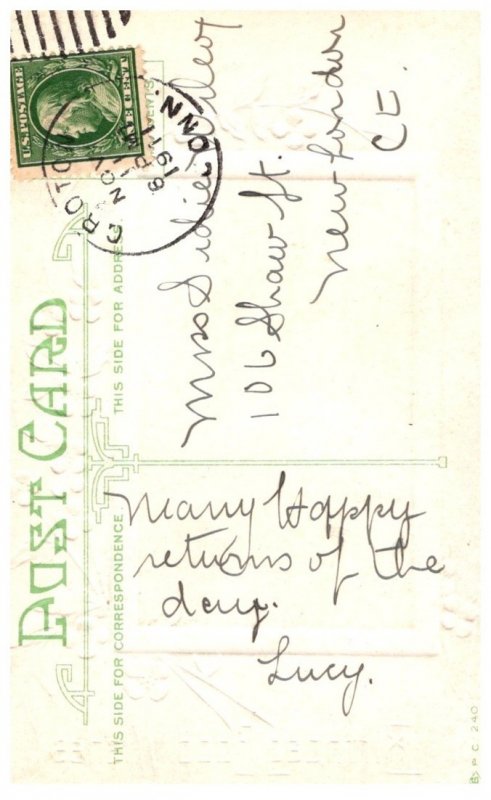 POST CARD
THIS SIDE FOR CORRESPONDENCE.
THIS SIDE FOR ADDRESS.
U.S. POSTAGE
CENT
GROTON CONN.
NOV
8 PM
1911
Many Happy
returns of the
day.
Lucy.
Miss
106 Shaw St.
New London
P.C. 240